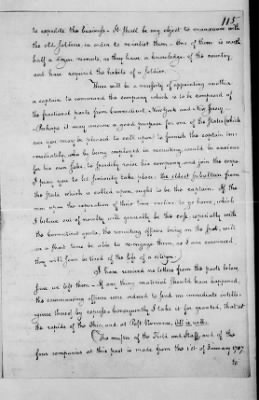 115
to expedite this business. It shall be my object to manoeuvre with
the old soldiers, in order to reinlist them. One of them is worth
half a dozen recruits, as they have a knowledge of the country,
and have acquired the habits of a soldier.
There will be a necessity of appointing another
a captain to command the company which is to be composed of
the fractional parts from Connecticut, New York and New Jersey.
Perhaps it may answer a good purpose for one of the States which
you may be pleased to call upon to furnish the captain im-
mediately, who by being employed in recruiting, would be anxious
for his own sake, to speedily raise his company, and join the corps.
I pray you to let seniority take place; the eldest subaltern from
the State which is called upon, ought to be the captain. If the
men upon the expiration of their time incline to go home, which
I believe out of novelty will generally be the case, especially with
the Connecticut quota, the recruiting officers being on the spot, will
in a short time be able to re-engage them, as I am convinced
they will soon be tired of the life of a citizen.
I have received no letters from the posts below,
since we left them. If any thing material should have happened,
the commanding officers were ordered to send me immediate intelli-
gence thereof by expresses. Consequently I take it for granted, that at
the rapids of the Ohio, and at Post Vincennes, all is well.
The muster of the Field and Staff, and of the
four companies at this post is made from the 1st of January 1787
to